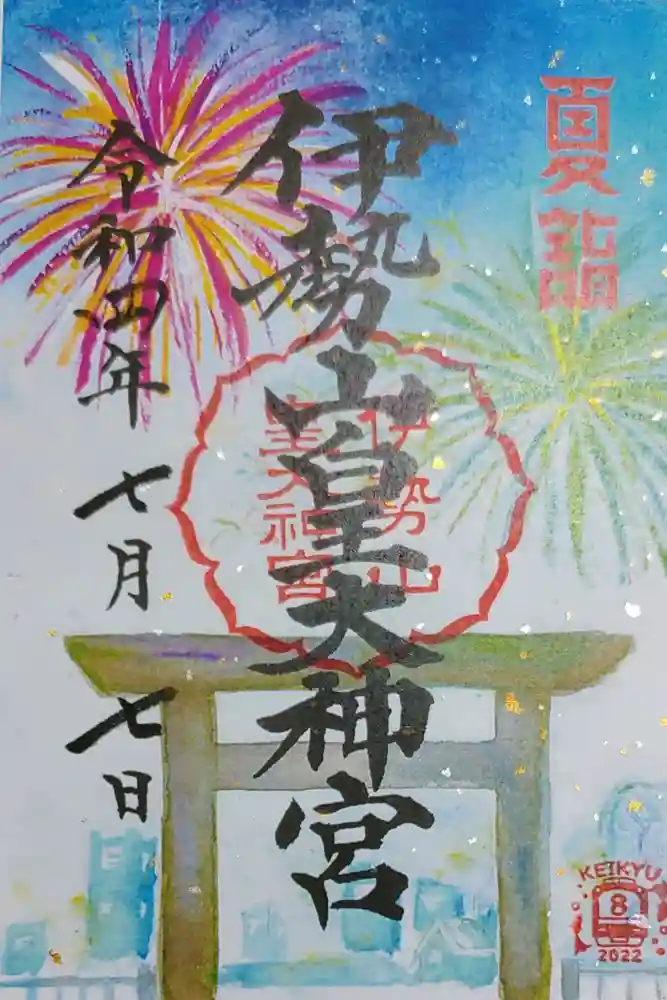 夏詣
伊勢山皇大神宮
伊勢山
皇大神宮
令和四年 七月 七日
KEIKYU
8
2022